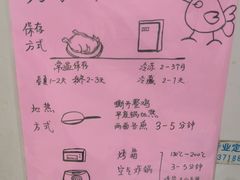 保存
方式
常温保存 冷冻 2-3个月
春夏1-2天 秋冬2-3天 冷藏 2-7天
加热
方式
撕开整鸡
平底锅加热
两面各煎 3-5分钟
烤箱 180℃-200℃
空气炸锅 3-5分钟
业定
37188